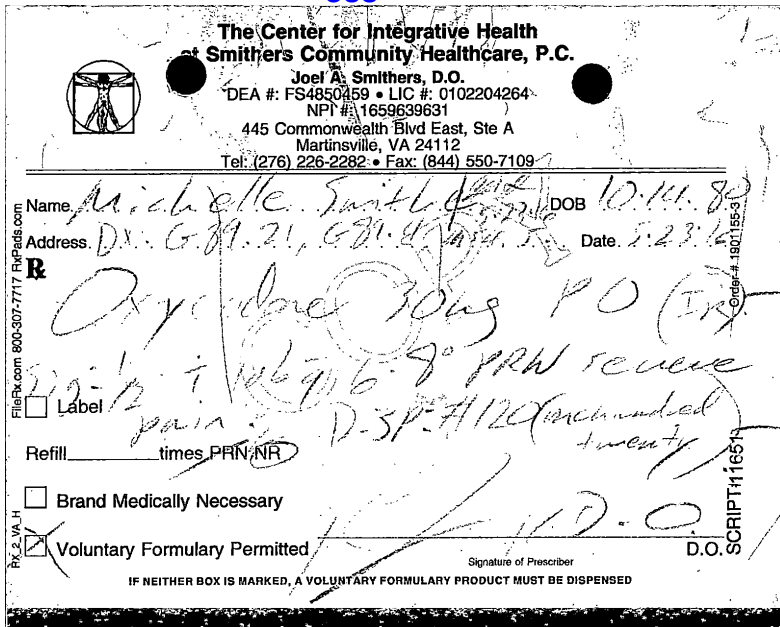 The Center for Integrative Health
at Smithers Community Healthcare, P.C.
Joel A. Smithers, D.O.
DEA #: FS4850459 • LIC #: 0102204264
NPI #: 1659639631
445 Commonwealth Blvd East, Ste A
Martinsville, VA 24112
Tel: (276) 226-2282 • Fax: (844) 550-7109
Name Michelle DOB 10.14.80
Address Dx. G89.21, G89.4 Date 5.23.16
Rx
Oxycodone 30mg PO (IR)
Sig- PRN severe
Label pain. Disp- #120 (one hundred
twenty)
Refill times PRN NR
Brand Medically Necessary
Voluntary Formulary Permitted D.O. D.O.
Signature of Prescriber
IF NEITHER BOX IS MARKED, A VOLUNTARY FORMULARY PRODUCT MUST BE DISPENSED
FileRx.com 800-307-7717 RxPads.com
RX_2_VA_H
Order # 1901155-3
SCRIPT# 11651